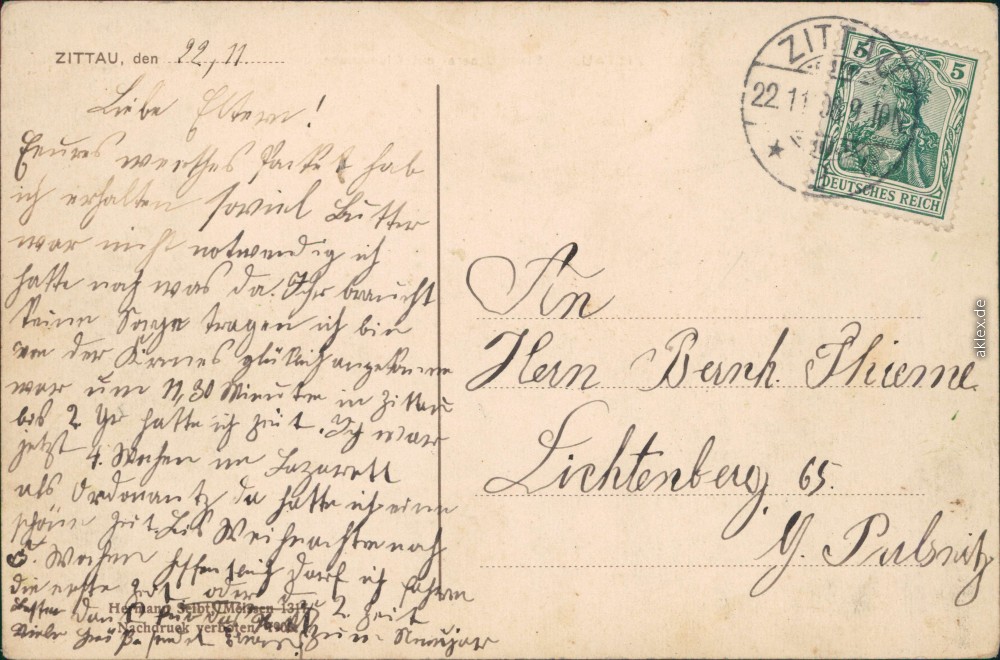 ZITTAU, den 22, 11.
Liebe Eltern!
Eeures werthes Packet hab
ich erhalten soviel Butter
war nicht notwendig ich
hatte noch was da. Ihr braucht
keine Sorge tragen ich bin
von der Kirmes glücklich angekommen
war um 11,30 Minuten in Zittau
bis 2 Uhr hatte ich zeit. Ich war
jetzt 4. Wochen im Lazarett
als Ordonantz da hatte ich eine
schöne Zeit. bis Weihnachten noch
5. Wochen hoffentlich darf ich fahren
die erste Zeit oder die 2 Zeit
besten Dank für das
Viele Grüße sendet zum Neujar
Hermann Seibt, Meissen
Nachdruck verboten
ZITTAU
22.11.08.9-10N.
5 5
DEUTSCHES REICH
An
Herrn Bernh. Thieme
Lichtenberg 65.
b. Pulsnitz
aklex.de